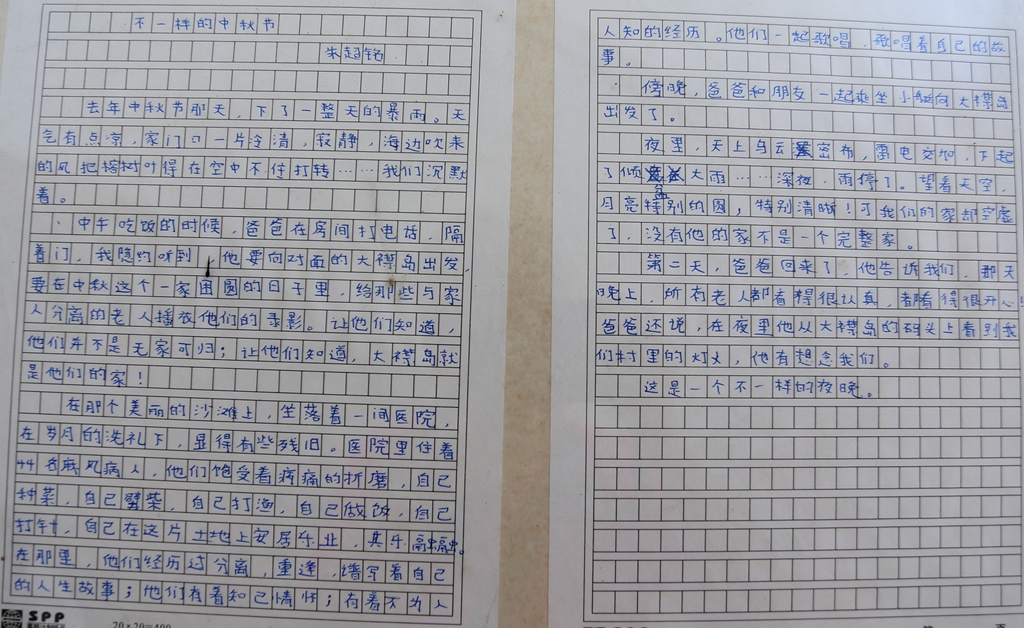 不一样的中秋节
朱超铭
去年中秋节那天，下了一整天的暴雨。天
气有点凉，家门口一片冷清，寂静，海边吹来
的风把榕树叶得在空中不住打转……我们沉默
着。
中午吃饭的时候，爸爸在房间打电话，隔
着门，我隐约听到，他要向对面的大襟岛出发，
要在中秋这个一家团圆的日子里，给那些与家
人分离的老人播放他们的录影。让他们知道，
他们并不是无家可归；让他们知道，大襟岛就
是他们的家！
在那个美丽的沙滩上，坐落着一间医院，
在岁月的洗礼下，显得有些残旧。医院里住着
麻风病人，他们饱受着病痛的折磨，自己
种菜，自己劈柴，自己打渔，自己做饭，自己
打针，自己在这片土地上安居乐业，其乐融融。
在那里，他们经历过分离，重逢，谱写着自己
的人生故事；他们有着知己情怀；有着不为人
SPP
20×20=400
人知的经历。他们一起歌唱，歌唱着自己的故
事。
傍晚，爸爸和朋友一起乘坐小艇向大襟岛
出发了。
夜里，天上乌云密布，雷电交加，下起
了倾盆大雨……深夜，雨停了。望着天空，
月亮特别的圆，特别清晰！可我们的家却空虚
了，没有他的家不是一个完整家。
第二天，爸爸回来了，他告诉我们，那天
晚上，所有老人都看得很认真，都看得很开心！
爸爸还说，在夜里他从大襟岛的码头上看到我
们村里的灯火，他有想念我们。
这是一个不一样的夜晚。